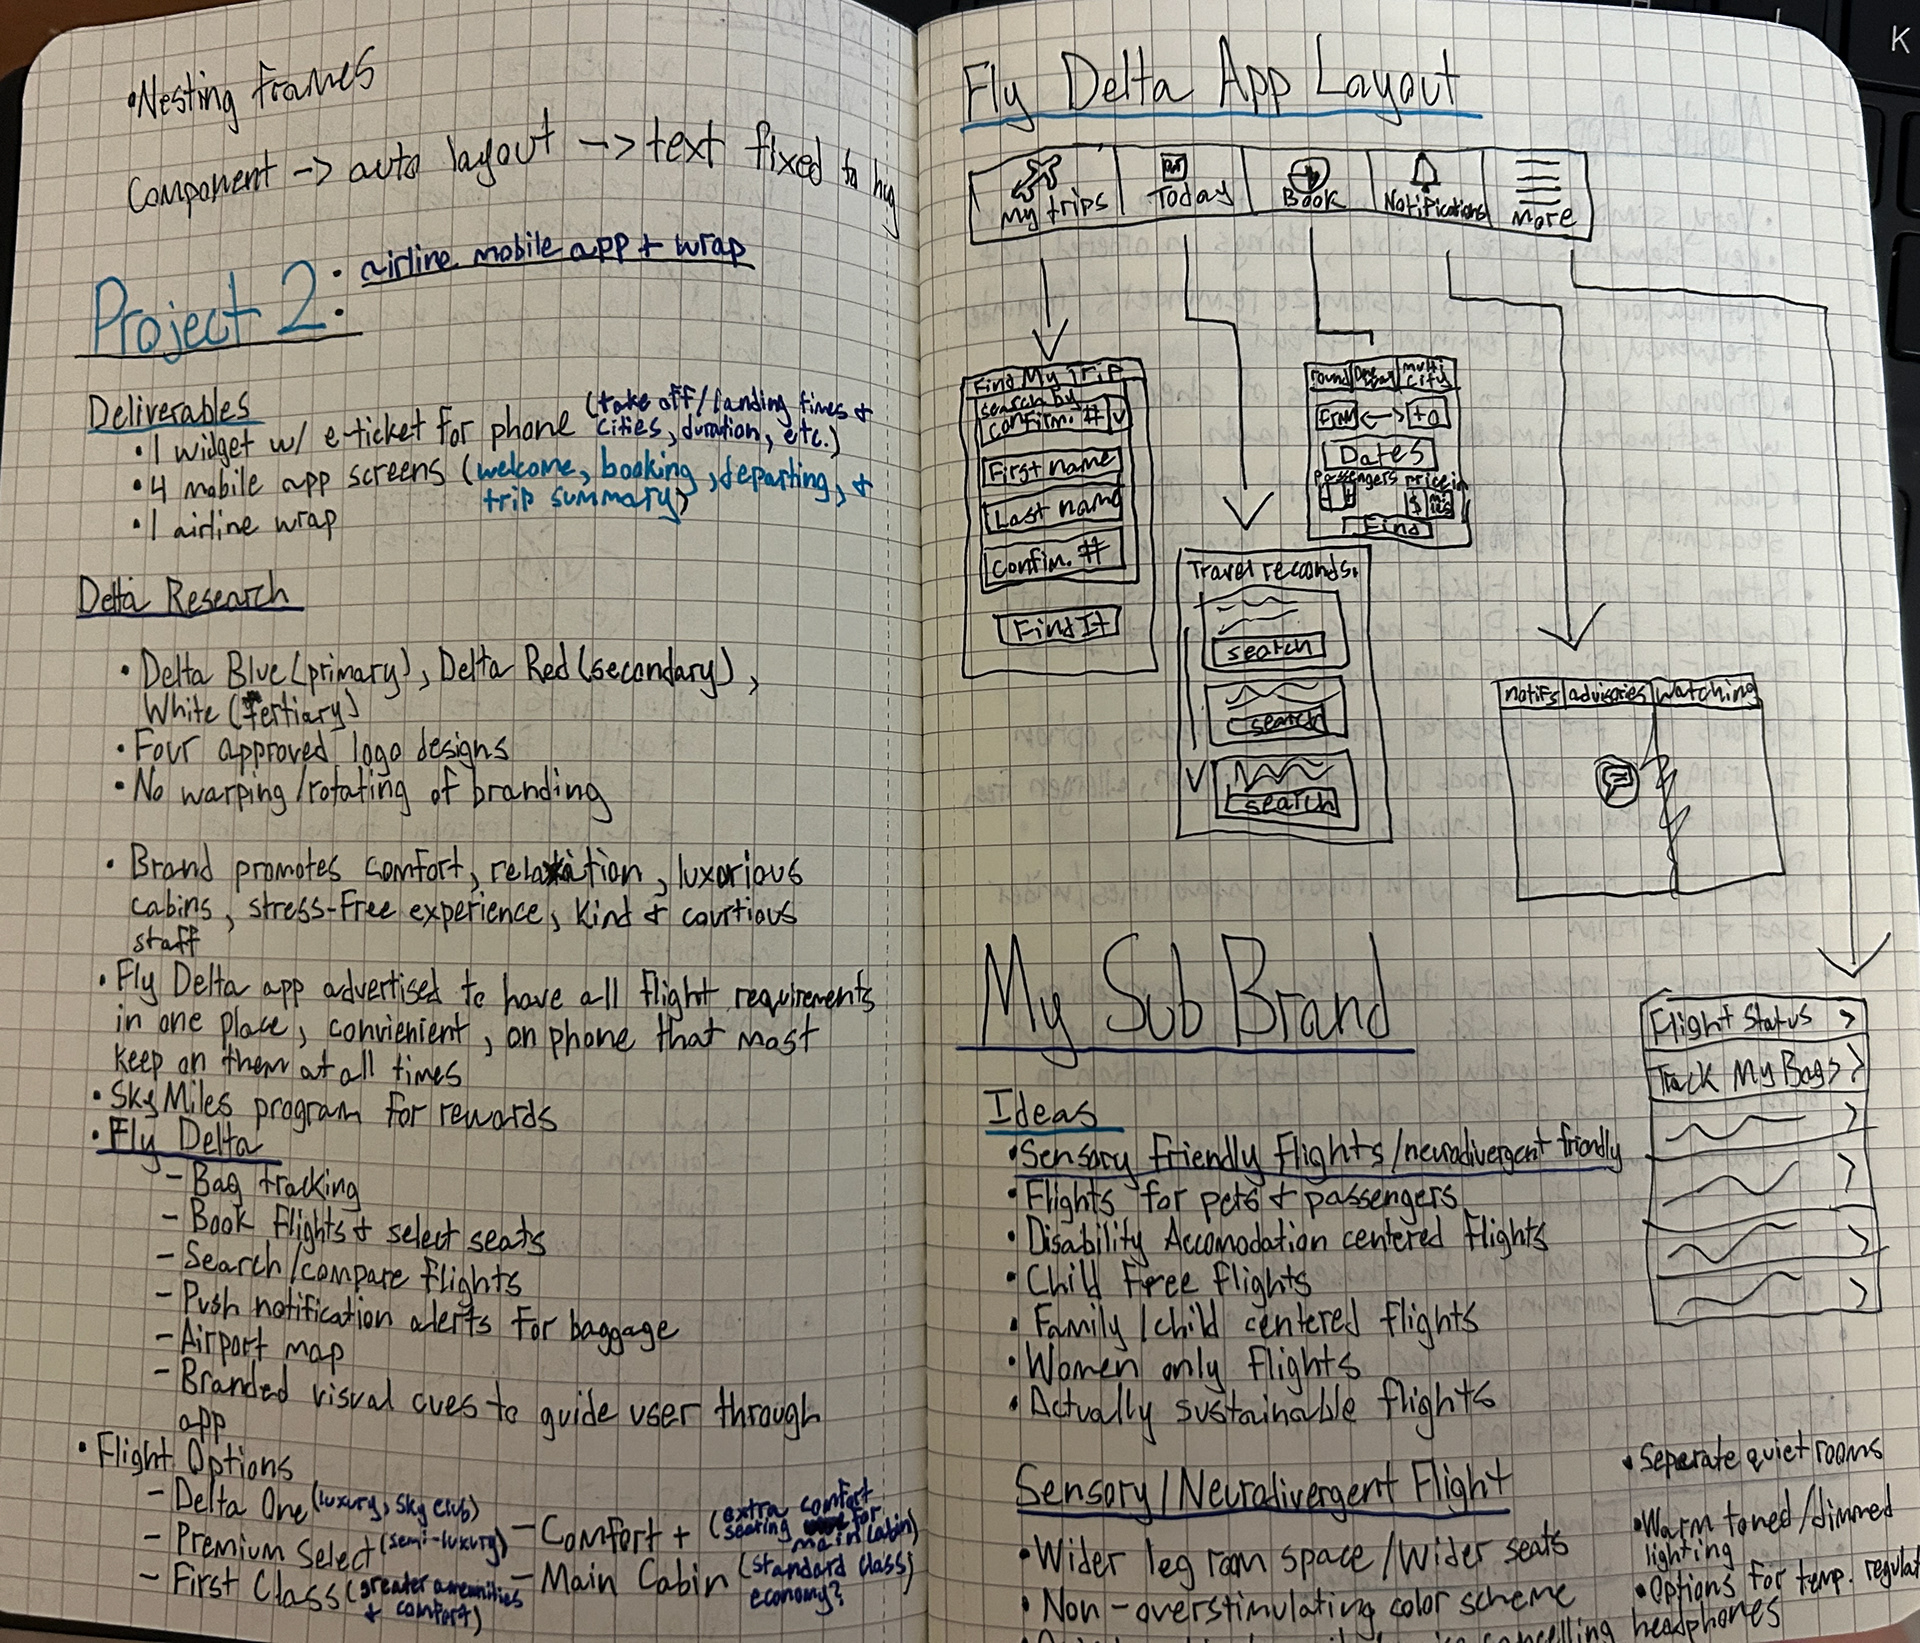 •Nesting frames
Component -> auto layout -> text fixed to hug
Project 2: airline mobile app + wrap
Deliverables
• 1 widget w/ e-ticket for phone (take off/landing times + cities, duration, etc.)
• 4 mobile app screens (welcome, booking, departing, + trip summary)
• 1 airline wrap
Delta Research
• Delta Blue (primary), Delta Red (secondary),
White (Tertiary)
• Four approved logo designs
• No warping/rotating of branding
• Brand promotes comfort, relaxation, luxurious
cabins, stress-free experience, kind + courtious
staff
• Fly Delta app advertised to have all flight requirements
in one place, convienient, on phone that most
keep on them at all times
• SkyMiles program for rewards
• Fly Delta
- Bag tracking
- Book flights + select seats
- Search/compare flights
- Push notification alerts for baggage
- Airport map
- Branded visual cues to guide user through
app
• Flight Options
- Delta One (luxury, sky club)
- Premium Select (semi-luxury)
- First Class (greater amenities + comfort)
- Comfort + (extra comfort seating for main cabin)
- Main Cabin (standard class) economy?
Fly Delta App Layout
My trips Today Book Notifications More
Find My Trip
search by
confirm. #
First name
Last name
Confim. #
Find It
Travel records.
search
search
search
round multi city
from <-> to
Dates
passengers price in
$ miles
Find
notifs advisories watching
Flight Status >
Track My Bags >
My Sub Brand
Ideas
• Sensory Friendly Flights/neurodivergent friendly
• Flights for pets + passengers
• Disability Accomodation centered flights
• Child free flights
• Family/child centered flights
• Women only flights
• Actually sustainable flights
Sensory/Neurodivergent Flight
• Wider leg room space/wider seats
• Non-overstimulating color scheme
• Seperate quiet rooms
• Warm toned/dimmed
lighting
• Options for temp. regulat
cancelling headphones